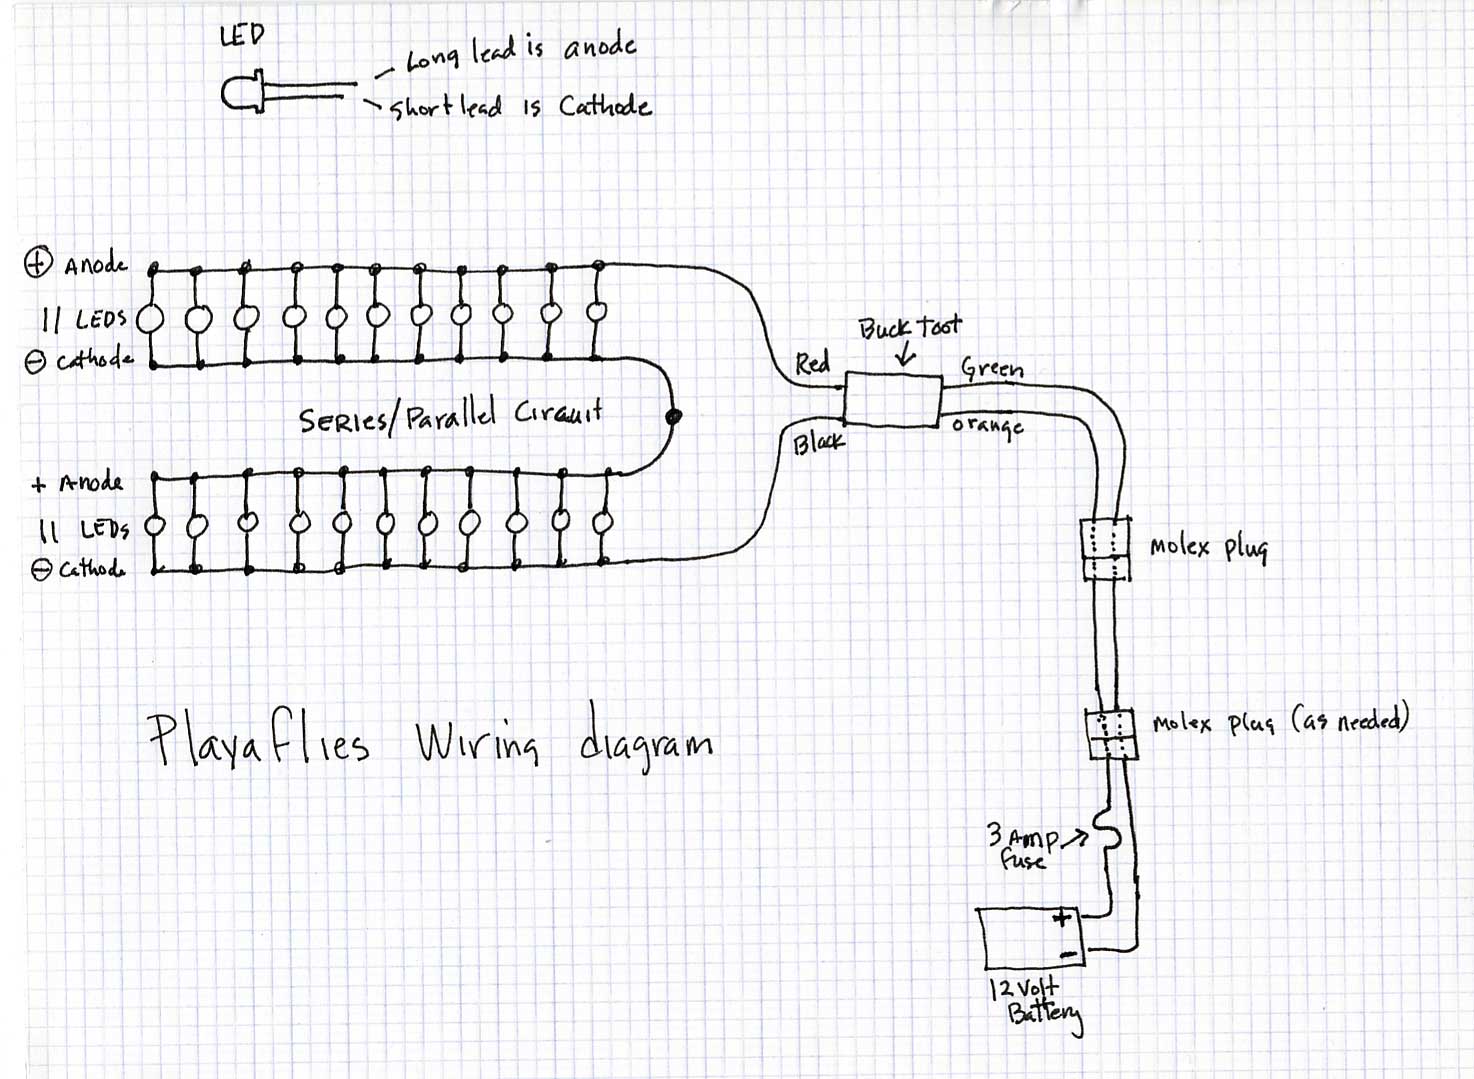 LED
Long lead is anode
short lead is Cathode
+ Anode
11 LEDS
- Cathode
SERIES/Parallel Circuit
+ Anode
11 LEDs
- Cathode
Red
Black
Buck Toot
Green
orange
Molex plug
Molex plug (as needed)
3 Amp
fuse
+
-
12 Volt
Battery
Playaflies Wiring diagram